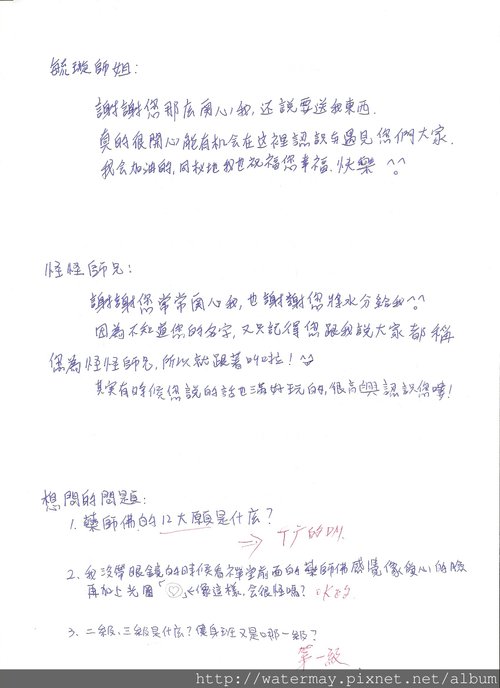 毓璇師姐:
謝謝您那么関心我,还說要送我東西.
真的很開心能有机会在这裡認識与遇見您們大家.
我会加油的,同秘地我也祝福您幸福.快樂 ^^
怪怪師兄:
謝謝您常常関心我,也謝謝您將水分給我^^
因為不知道您的名字,又只記得您跟我說大家都稱
您為怪怪師兄,所以就跟著叫啦! ^^
其实有時候您說的話也滿好玩的,很高興認識您嘍!
想問的問題:
1. 藥師佛的12大願是什庅?
→ 下广的DM.
2. 我沒帶眼鏡的時候看禪堂前面的藥師佛感覺像愛心的臉
再加上光圈「♡」←像這樣,会很怪嗎? 
3. 二級、三級是什庅?健身班又是哪一級?
第一級
http://watermay.pixnet.net/album